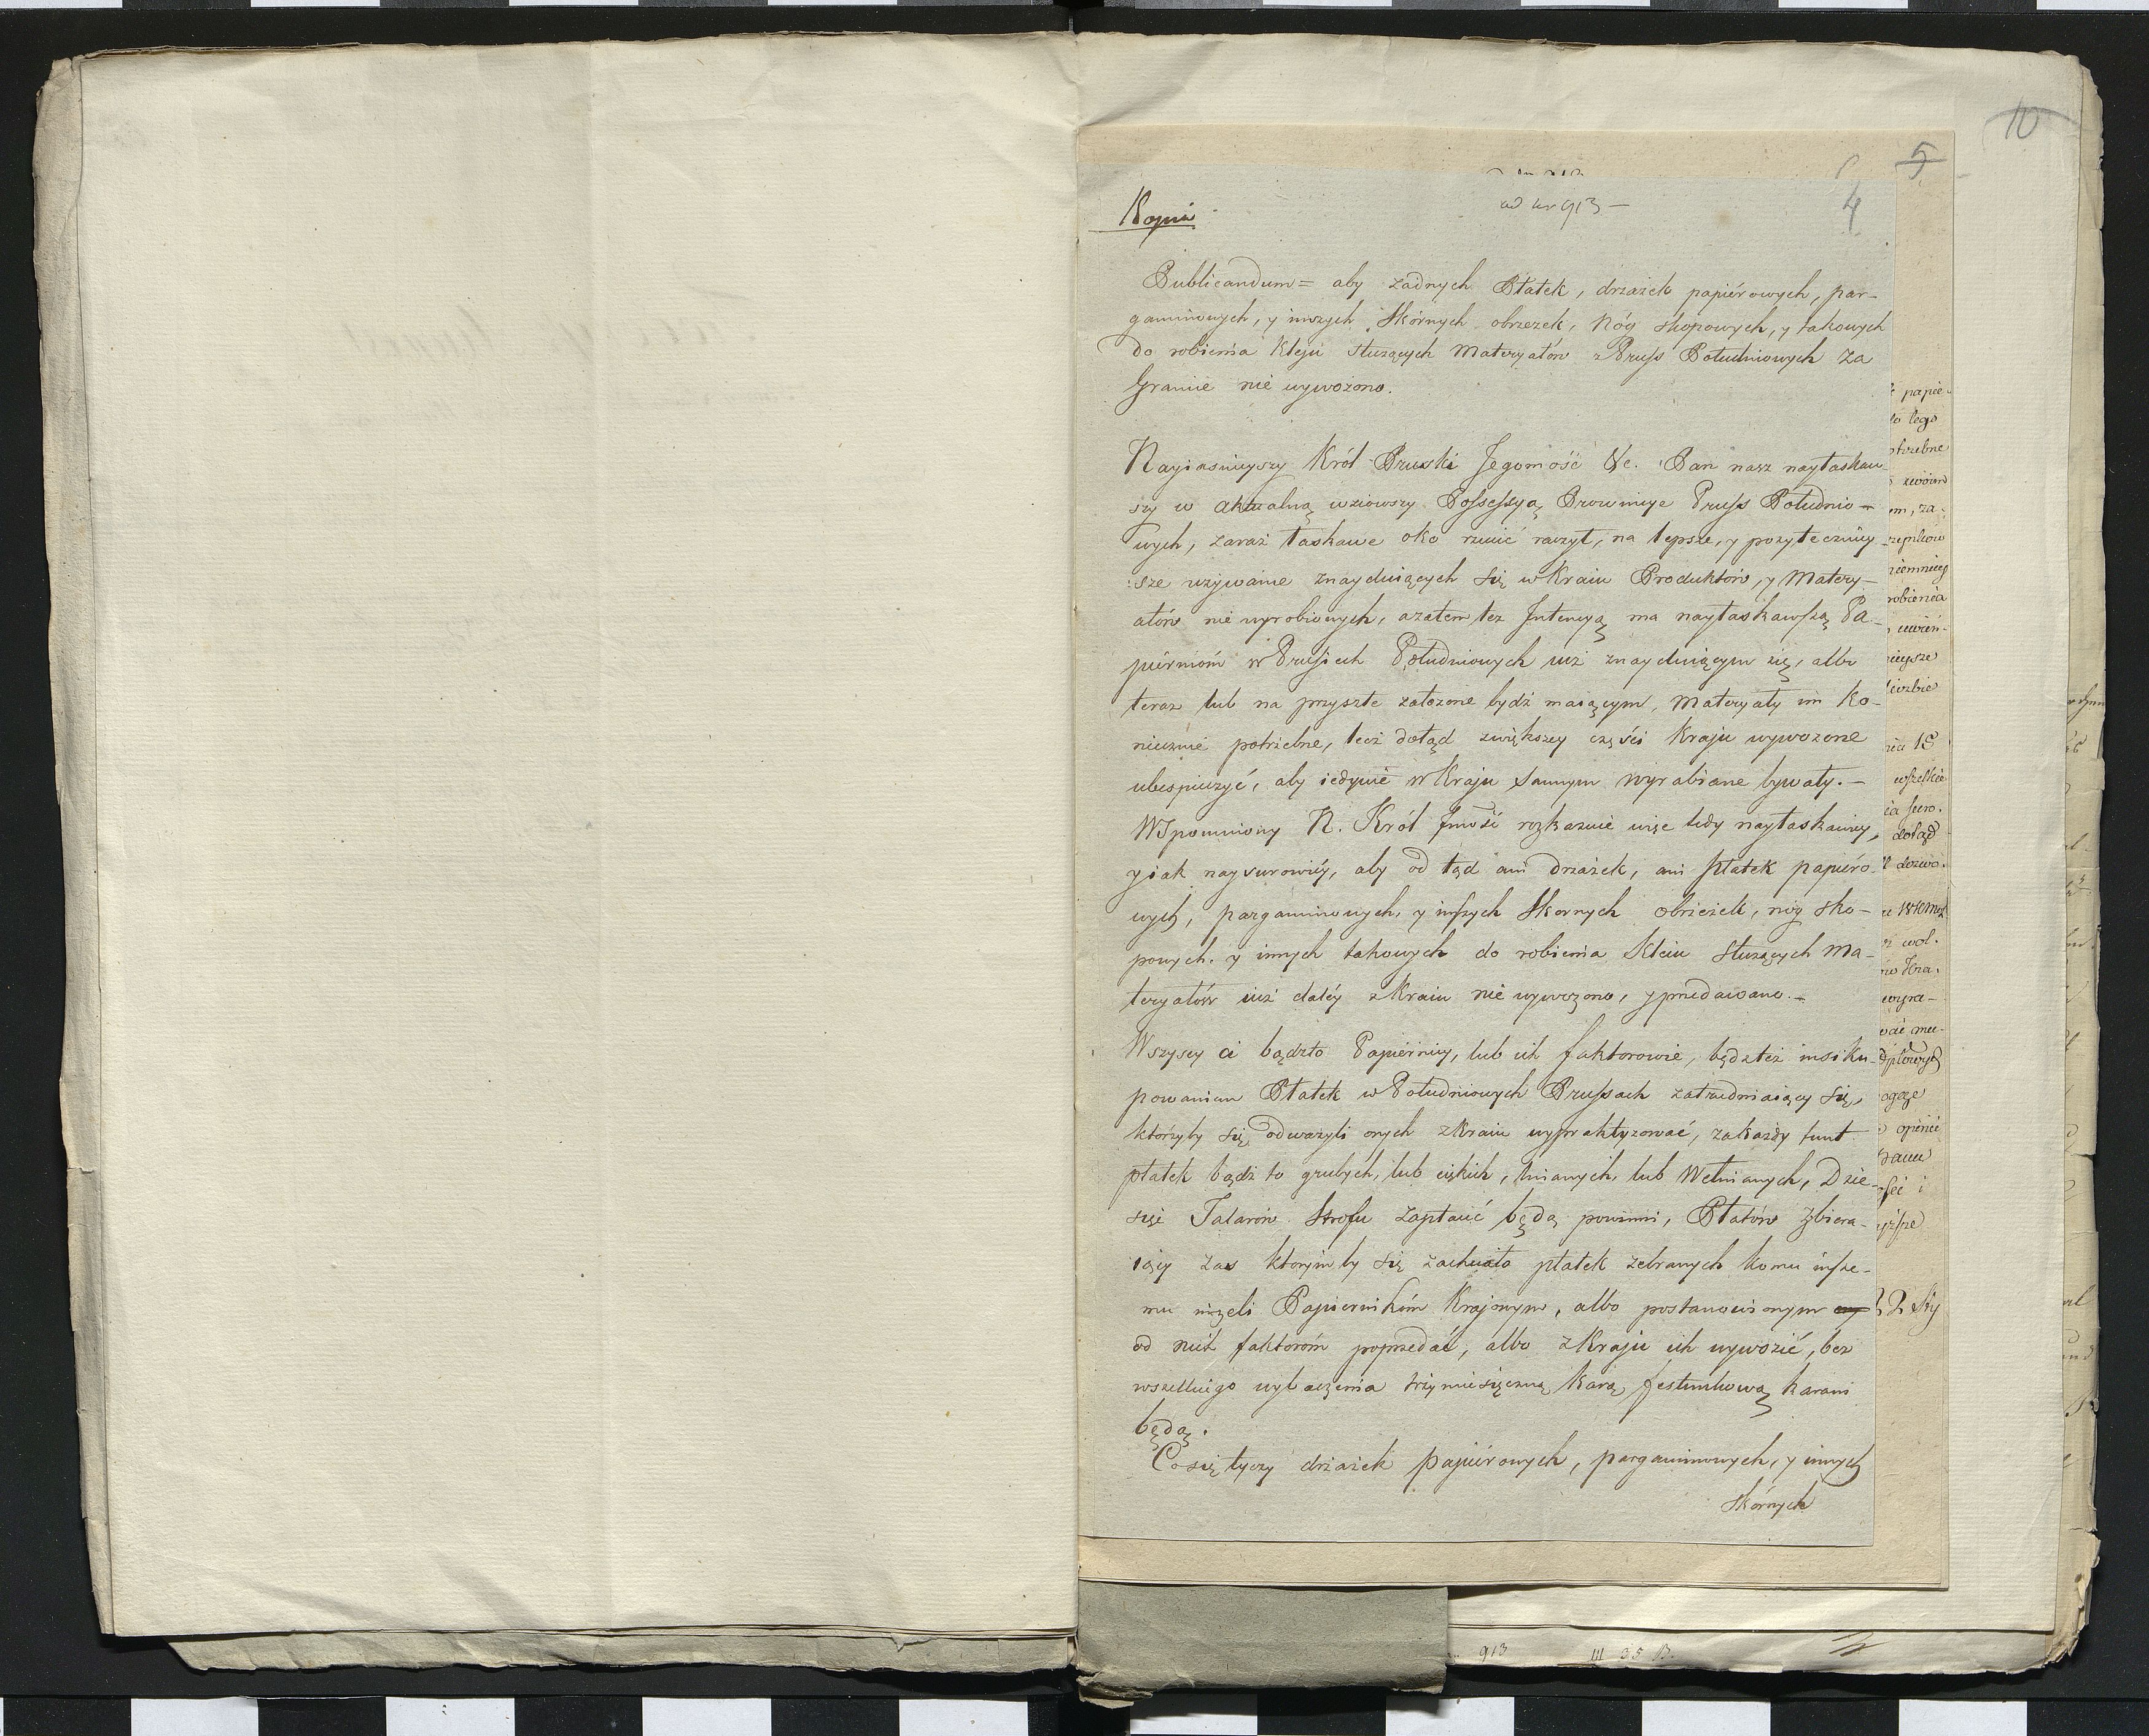 10
5
4
ad nr 913 —
Kopia
Publicandum = aby żadnych Płatek, drzażek papiérowych, par-
gaminowych, y inszych Skórnych obrzezek, Nóg skopowych, y takowych
do robienia Kleju służących Materyałów z Pruss Południowych za
Granie nie wywożono.
Nayiaśnieyszy Król Pruski Jegomość &c. Pan nasz nayłaskaw-
szy w aktualną wziowszy Possessyą Prowincye Pruss Południo-
wych, zaraz łaskawe oko rzucić raczył, na lepsze, y pozyteczniey-
sze uzywanie znayduiących się w Kraiu Produktów, y Matery-
ałów nie wyrobionych, azatem tez Intencyą ma nayłaskawszą Pa-
piérniom w Prusiech Południowych iuż znayduiącym się, albo
teraz lub na przyszłe założone bydź maiącym, Materyały im Ko-
niecznie potrzebne, lecz dotąd zwiększey części Kraju wywozone
ubespieczyć, aby iedynie w Kraju samym wyrabiane bywały. —
Wspomniony N. Król Jmość rozkazuie więc tedy nayłaskawiey,
y iak naysurowiéy, aby od tąd ani drzażek, ani płatek papiéro-
wych, pargaminowych, y inszych Skornych obrzeżek, nóg sko-
powych, y innych takowych do robienia Kleiu służących Ma-
teryałów iuż daléy z Kraiu nie wywozono, y przedawano. —
Wszyscy ci bądzto Papiérnicy, lub ich faktorowie, bądz też insi ku-
powaniem Płatek w Południowych Prussach zatrudniaiący się,
którzyby się odwazyli onych z Kraiu wypraktyzować, za każdy funt
płatek bądź to grubych, lub cięskich, lnianych, lub Wełnianych, Dzie-
sięć Talarów Strofu zapłacić będą powinni, Płatów zbiera-
iący zas którym by się zachciało płatek zebranych komu insze-
mu niżeli Papiernikóm Krajowym, albo postanowionym
od nich faktoróm poprzedać, albo z Kraju ich wywozić, bez
wszelkiego wyłączenia trzymiesięczną Karą festunkową karani
będą.
Co się tyczy drzażek papiérowych, pargaminowych, y innych
skórnych
papie-
do tego
otrzebne
em, za-
robienia
dotąd
wol.
wyra-
opieńie
913 III 35 B.